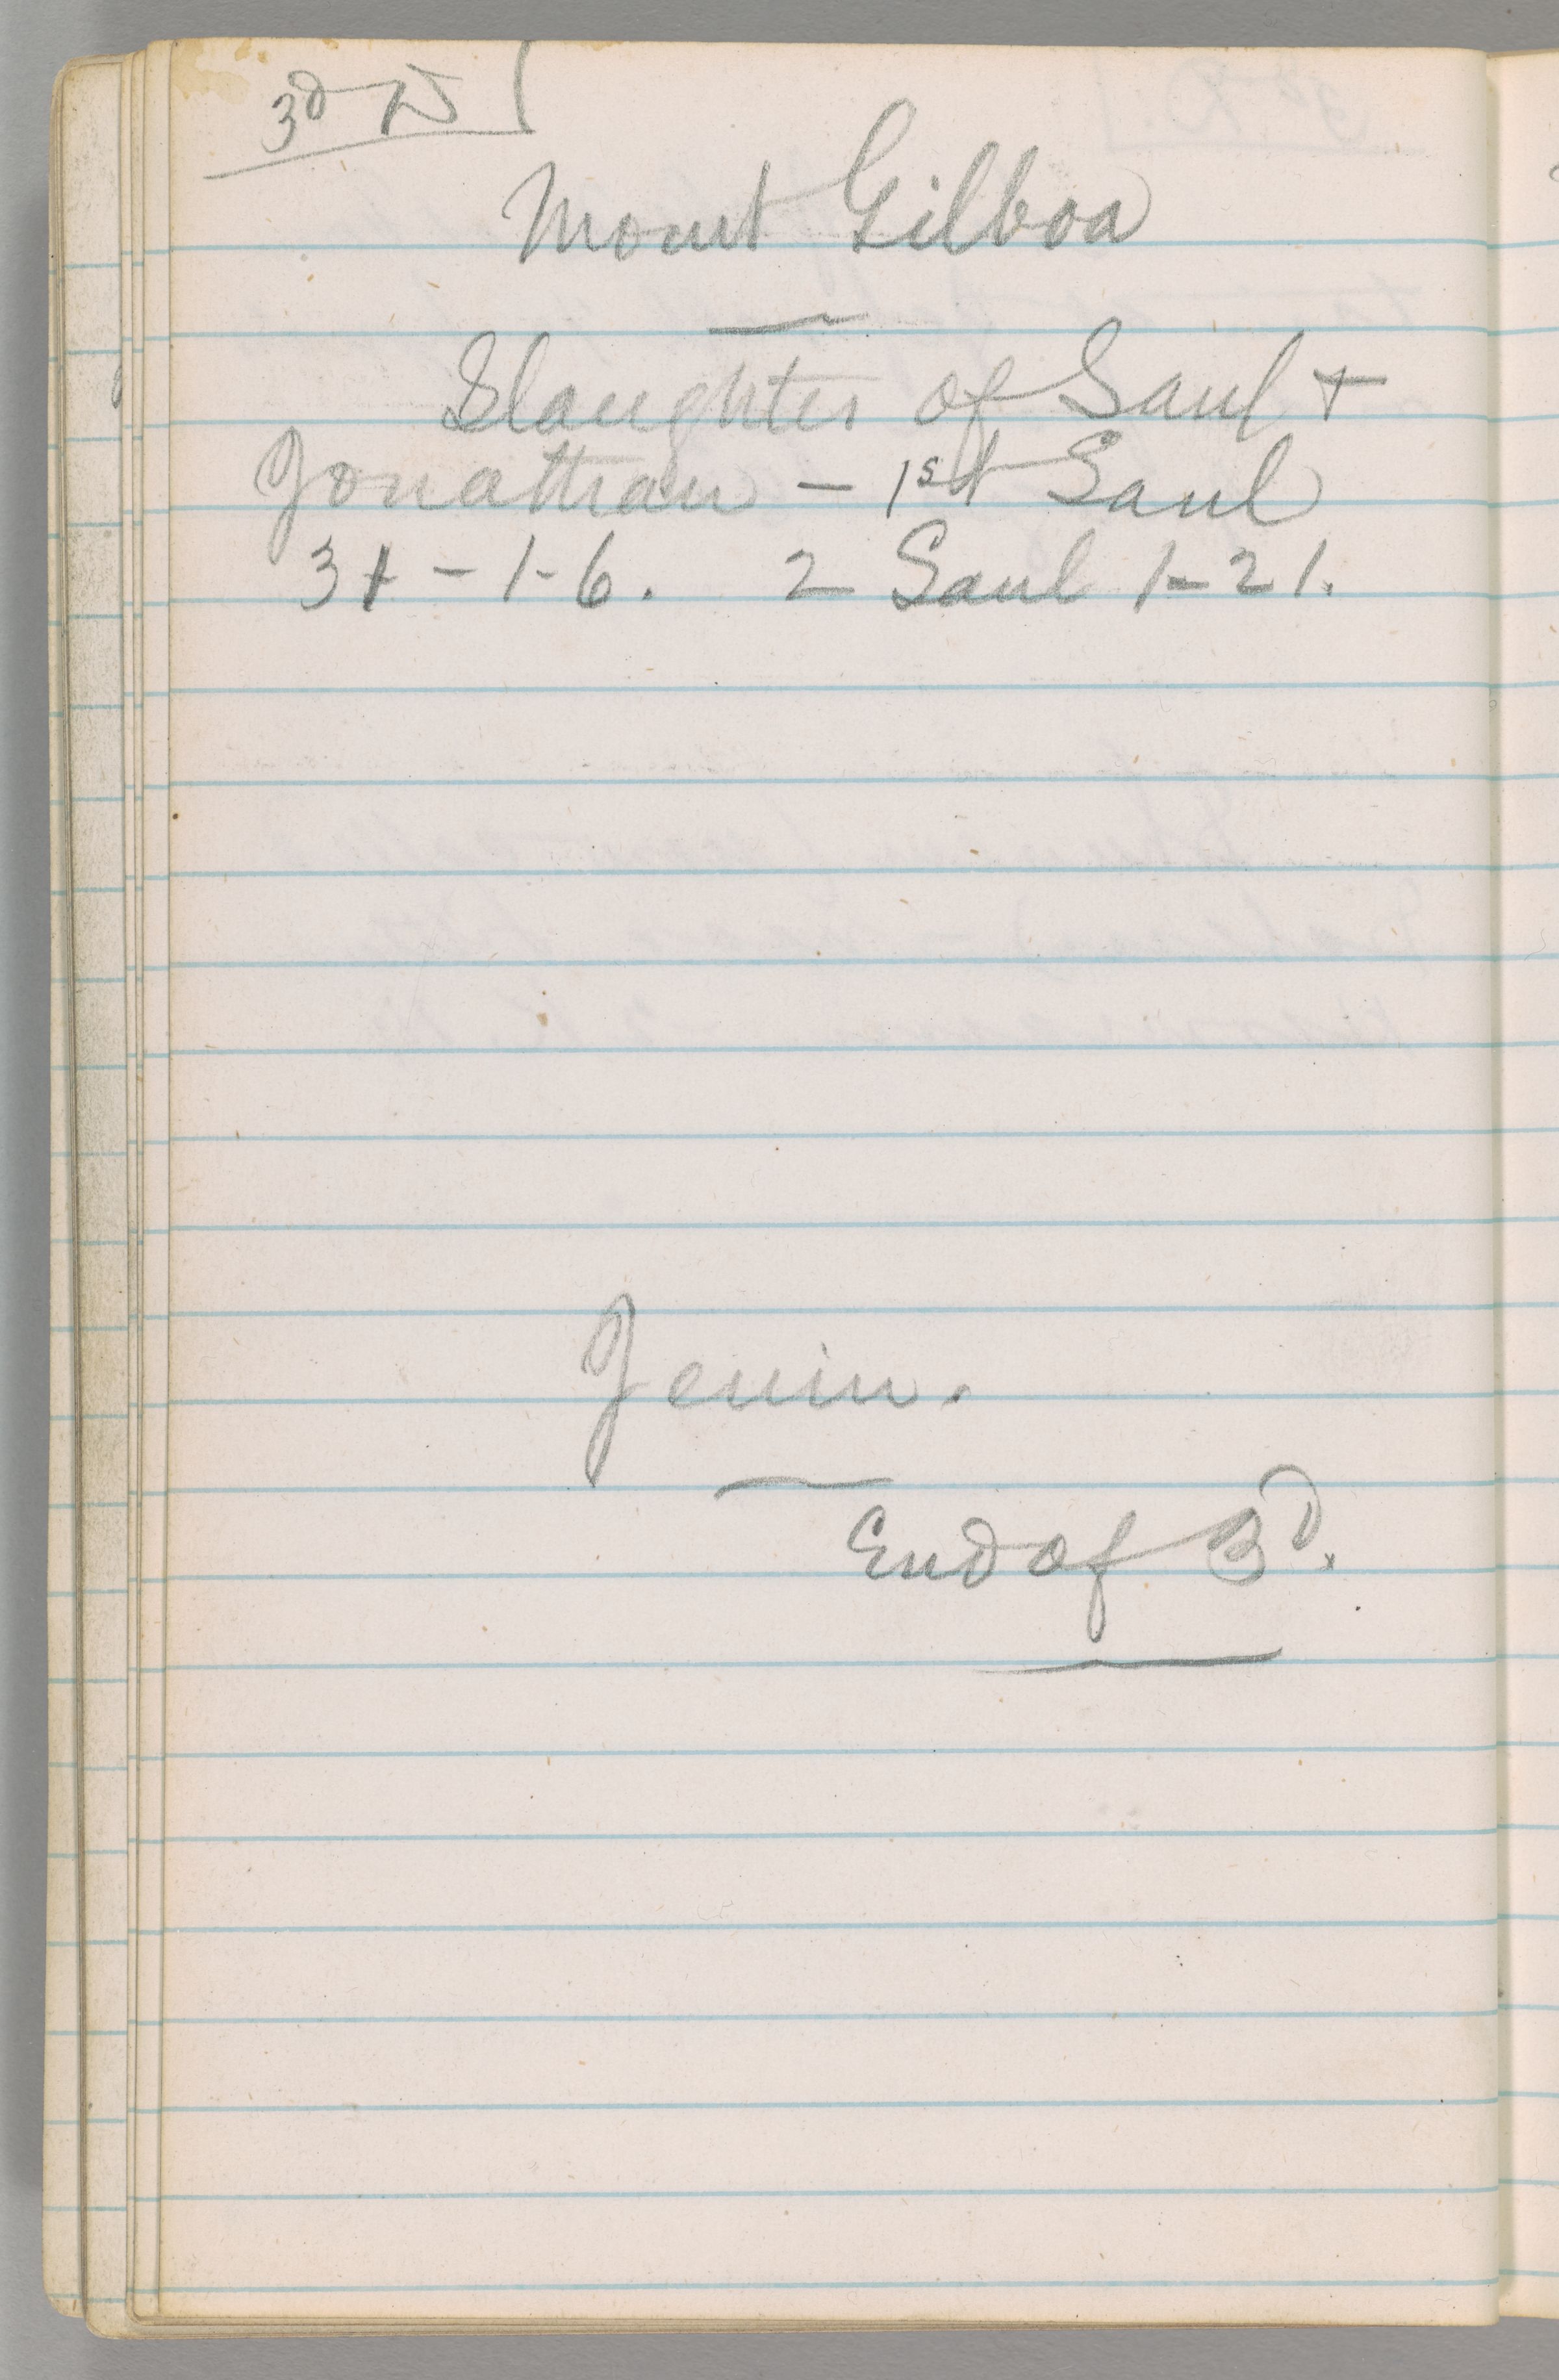 3d
Mount Gilboa
Slaughter of Saul +
Jonathan - 1st Saul
31 - 1-6. 2 Saul 1-21.
Jenin.
End of 3d.